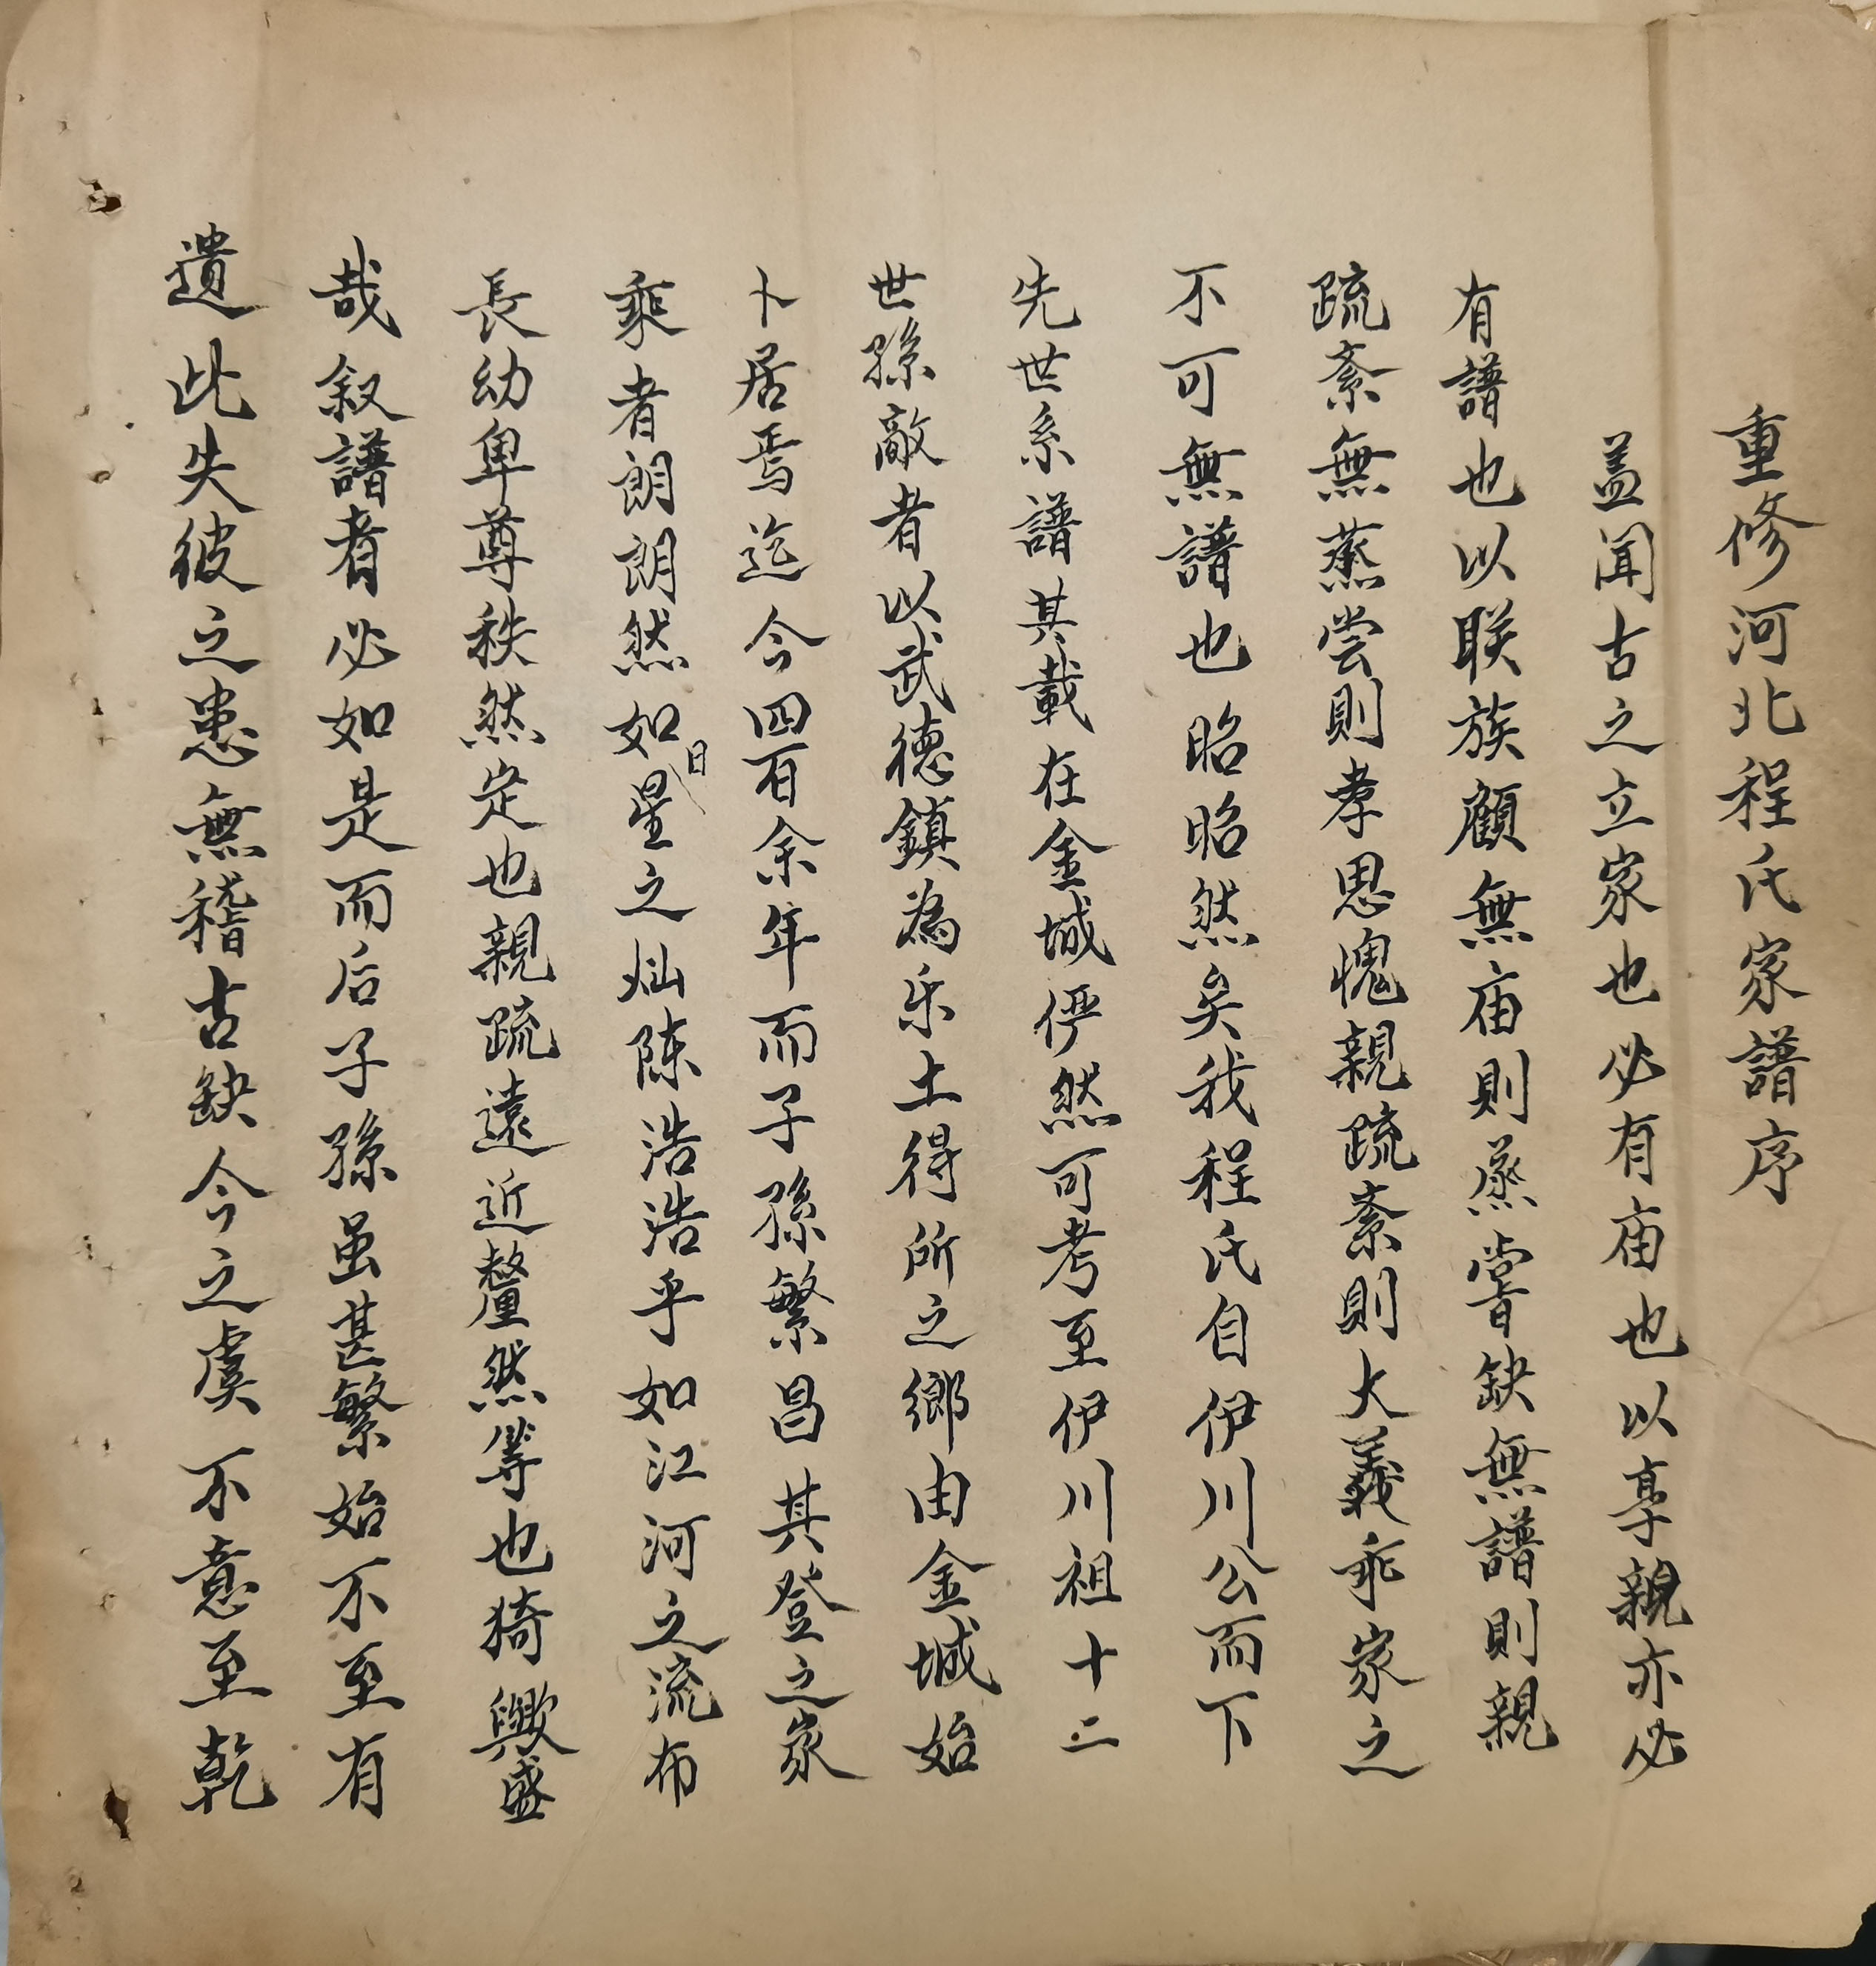 重修河北程氏家譜序
盖闻古之立家也必有庙也以享親亦必
有譜也以联族顧無庙則烝嘗缺無譜則親
疏紊無蒸尝則孝思愧親疏紊則大義乖家之
不可無譜也昭昭然矣我程氏自伊川公而下
先世系譜其載在金城俨然可考至伊川祖十二
世孫敵者以武德鎮為乐土得所之鄉由金城始
卜居焉迄今四百余年而子孫繁昌其登之家
乘者朗朗然如日星之灿陈浩浩乎如江河之流布
長幼卑尊秩然定也親疏遠近釐然等也猗歟盛
哉叙譜者必如是而后子孫虽甚繁始不至有
遺此失彼之患無稽古缺今之虞不意至乾